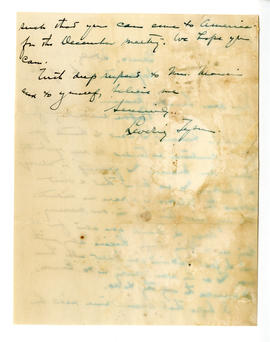 such that you can come to America
for the December meeting. We hope you
can.
With deep regard to Mrs.
and to yourself, believe me
Sincerely,
Lovering